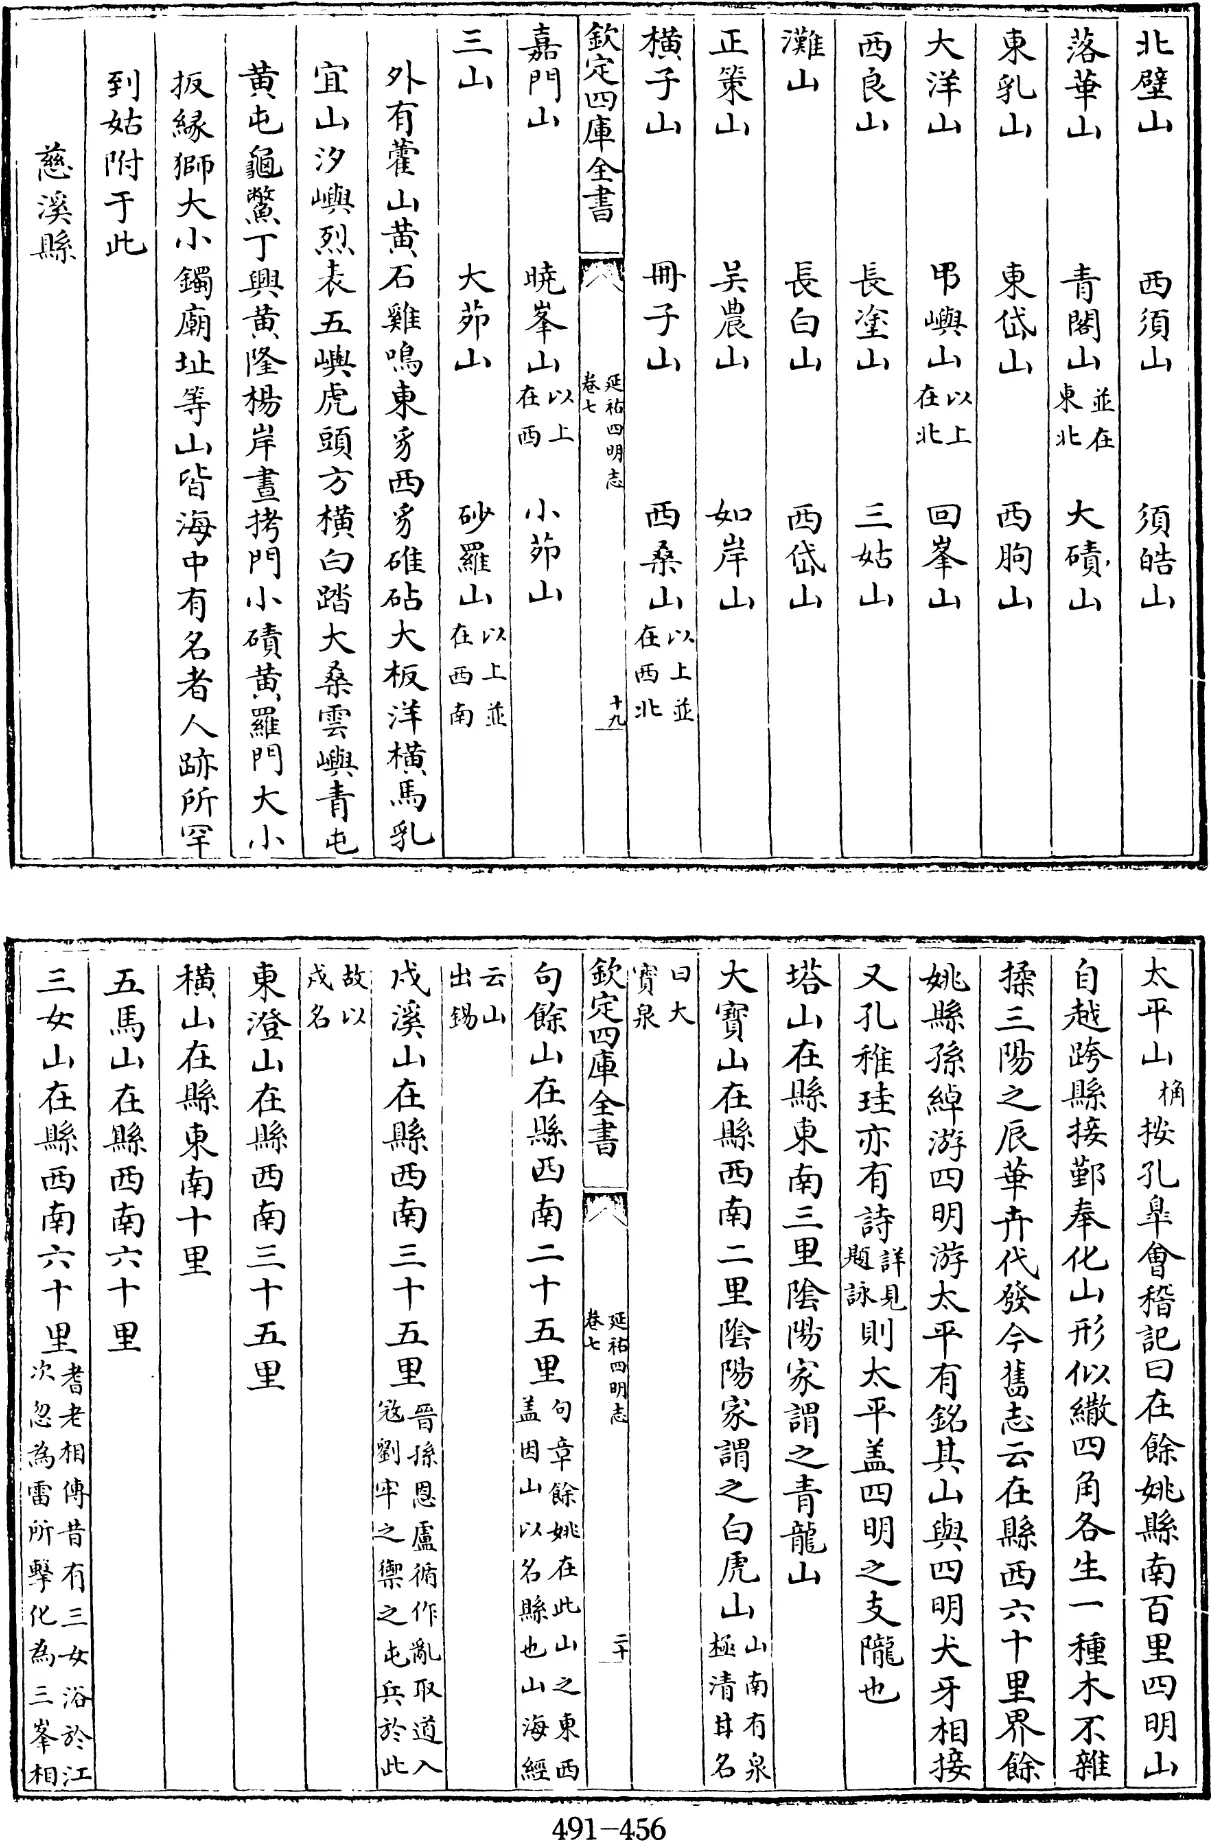 北壁山 西須山 須皓山
落華山 青閣山並在東北 大磧山
東乳山 東岱山 西朐山
大洋山 帍嶼山以上在北 回峯山
西良山 長塗山 三姑山
灘山 長白山 西岱山
正策山 吴農山 如岸山
橫子山 冊子山 西桑山以上並在西北
欽定四庫全書 延祐四明志 卷七 十九
嘉門山 曉峯山以上在西 小茆山
三山 大茆山 砂羅山以上並在西南
外有藿山黄石雞鳴東豸西豸碓砧大板洋橫馬乳
宜山汐嶼烈表五嶼虎頭方橫白踏大桑雲嶼青屯
黄屯龜鱉丁興黄隆楊岸晝拷門小磧黄羅門大小
扳緣獅大小鐲廟址等山皆海中有名者人跡所罕
到姑附于此
慈溪縣
太平山桷按孔臯會稽記曰在餘姚縣南百里四明山
自越跨縣接鄞奉化山形似繖四角各生一種木不雜
揉三陽之辰華卉代發今舊志云在縣西六十里界餘
姚縣孫綽游四明游太平有銘其山與四明犬牙相接
又孔稚珪亦有詩詳見題詠則太平蓋四明之支隴也
塔山在縣東南三里陰陽家謂之青龍山
大寳山在縣西南二里陰陽家謂之白虎山山南有泉極清甘名
曰大寳泉
欽定四庫全書 延祐四明志 卷七 二十
句餘山在縣西南二十五里句章餘姚在此山之東西蓋因山以名縣也山海經
云山出錫
戍溪山在縣西南三十五里晉孫恩盧循作亂取道入冦劉牢之禦之屯兵於此
故以戍名
東澄山在縣西南三十五里
橫山在縣東南十里
五馬山在縣西南六十里
三女山在縣西南六十里耆老相傳昔有三女浴於江次忽為雷所擊化為三峯相
491-456